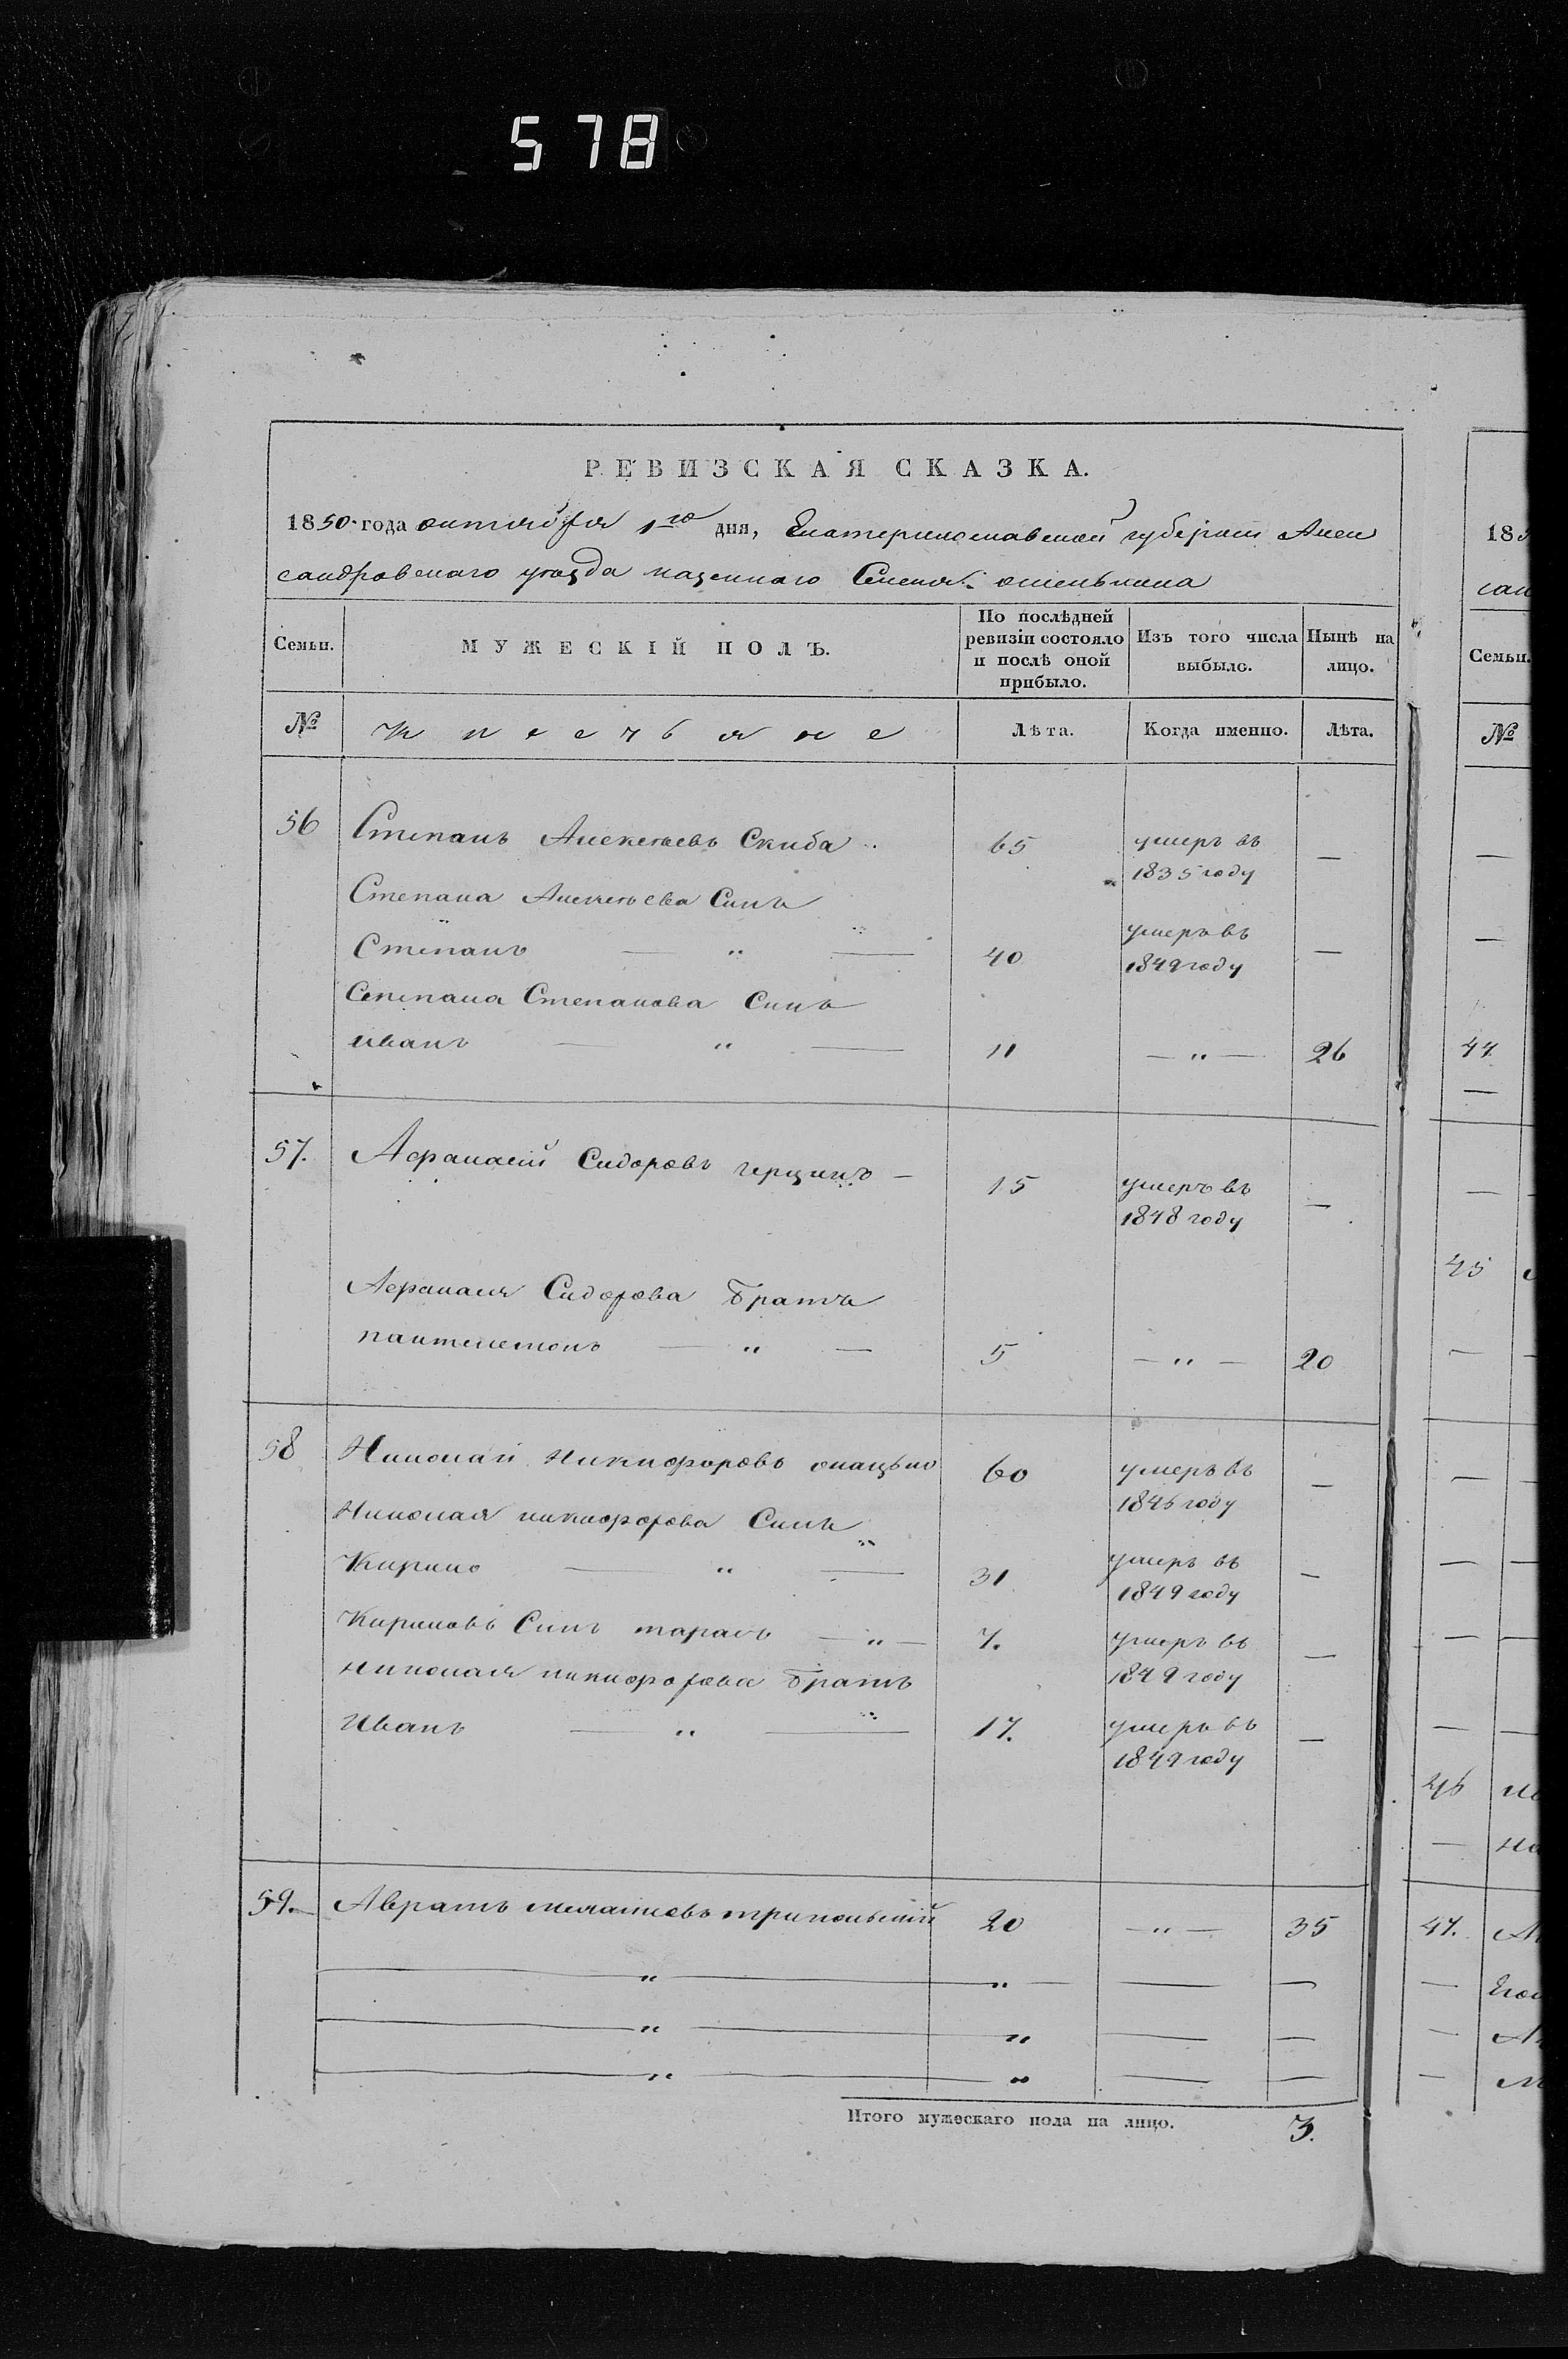 578
РЕВИЗСКАЯ СКАЗКА.
1850 года октября 1го дня, Екатеринославской губернии Алек
сандровскаго уезда казеннаго Селения
Семьи. МУЖЕСКІЙ ПОЛЪ. По послѣдней ревизіи состояло и послѣ оной прибыло. Изъ того числа выбыло. Нынѣ на лицо.
№ Крестьяне Лѣта. Когда именно. Лѣта.
56 Степанъ Алексеевъ Скиба 65 умеръ въ 1835 году —
Степана Алексеева Синъ
Степанъ — " — 40 умеръ въ 1849 году —
Степана Степанова Синъ
иванъ — " — 11 — " — 26
57. Афанасий Сидоровъ — 15 умеръ въ 1848 году —
Афанасия Сидорова Братъ
пантелемонъ — " — 5 — " — 20
58 Николай Никифоровъ онацько 60 умеръ въ 1846 году —
Николая никифорова Синъ
Кирило — " — 31 умеръ въ 1849 году —
Кириловъ Синъ тарасъ — " — 7. умеръ въ 1849 году —
николая никифорова Братъ
Иванъ — " — 17. умеръ въ 1849 году —
59. Аврамъ трипольский 20 — " — 35
— " — " — — —
— " — " — —
— " — " — —
Итого мужескаго пола на лицо. 3.
185
сан
Семьи.
№
—
—
44
—
—
45
—
—
—
—
—
46
—
47.
—
—
—